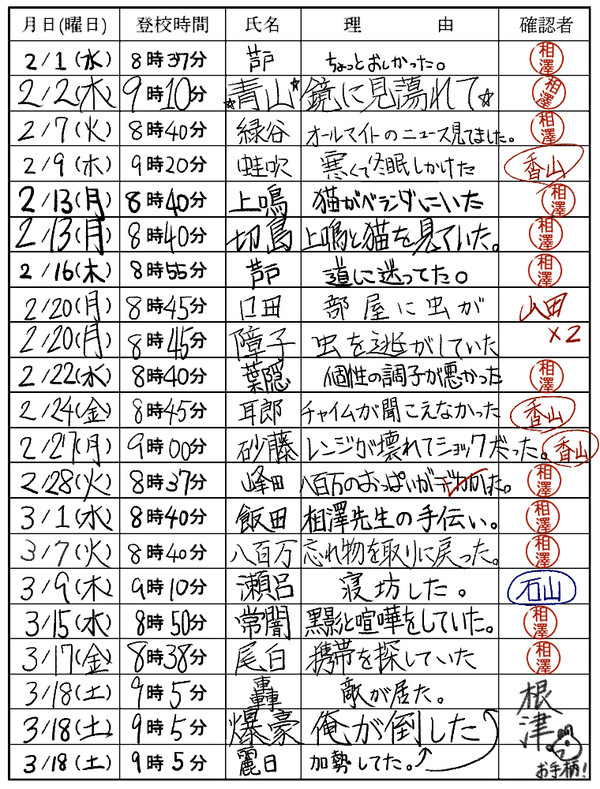 月日(曜日) 登校時間 氏名 理由 確認者
2/1(水) 8時37分 芦戸 ちょっとおしかった。 相澤
2/2(木) 9時10分 ☆青山☆ 鏡に見蕩れて☆ 相澤
2/7(火) 8時40分 緑谷 オールマイトのニュース見てました。 相澤
2/9(木) 9時20分 蛙吹 寒くて冬眠しかけた 香山
2/13(月) 8時40分 上鳴 猫がベランダにいた 相澤
2/13(月) 8時40分 切島 上鳴と猫を見ていた。 相澤
2/16(木) 8時55分 芦戸 道に迷ってた。 相澤
2/20(月) 8時45分 口田 部屋に虫が 山田
2/20(月) 8時45分 障子 虫を逃がしていた ×2
2/22(水) 8時40分 葉隠 個性の調子が悪かった 相澤
2/24(金) 8時45分 耳郎 チャイムが聞こえなかった 香山
2/27(月) 9時00分 砂藤 レンジが壊れてショックだった。 香山
2/28(火) 8時37分 峰田 八百万のおっぱいが 相澤
3/1(水) 8時40分 飯田 相澤先生の手伝い。 相澤
3/7(火) 8時40分 八百万 忘れ物を取りに戻った。 相澤
3/9(木) 9時10分 瀬呂 寝坊した。 石山
3/15(水) 8時50分 常闇 黒影と喧嘩をしていた。 相澤
3/17(金) 8時38分 尾白 携帯を探していた 相澤
3/18(土) 9時5分 轟 敵が居た。 根津
3/18(土) 9時5分 爆豪 俺が倒した
3/18(土) 9時5分 麗日 加勢してた。 お手柄!